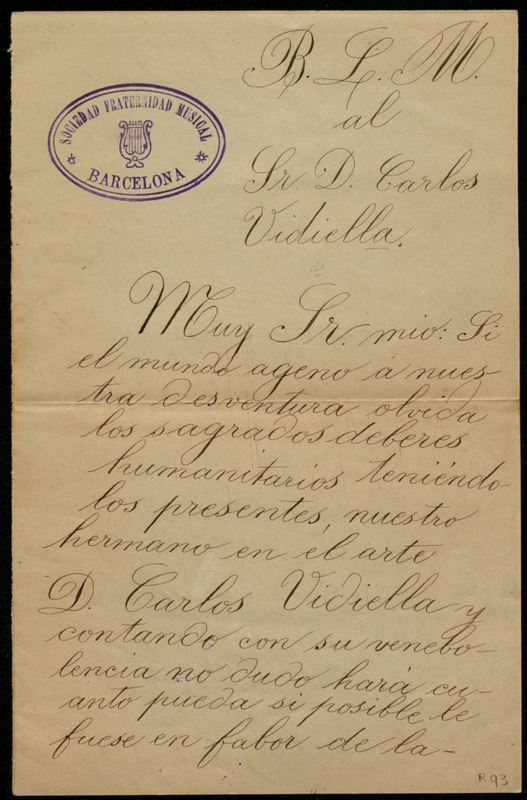 B. L. M.
al
Sr. D. Carlos
Vidiella.
SOCIEDAD FRATERNIDAD MUSICAL
BARCELONA
Muy Sr. mio: Si
el mundo ageno á nues-
tra desventura olvida
los sagrados deberes
humanitarios teniéndo-
los presentes, nuestro
hermano en el arte
D. Carlos Vidiella y
contando con su venebo-
lencia no dudo hará cu-
anto pueda si posible le
fuese en fabor de la-
R 93